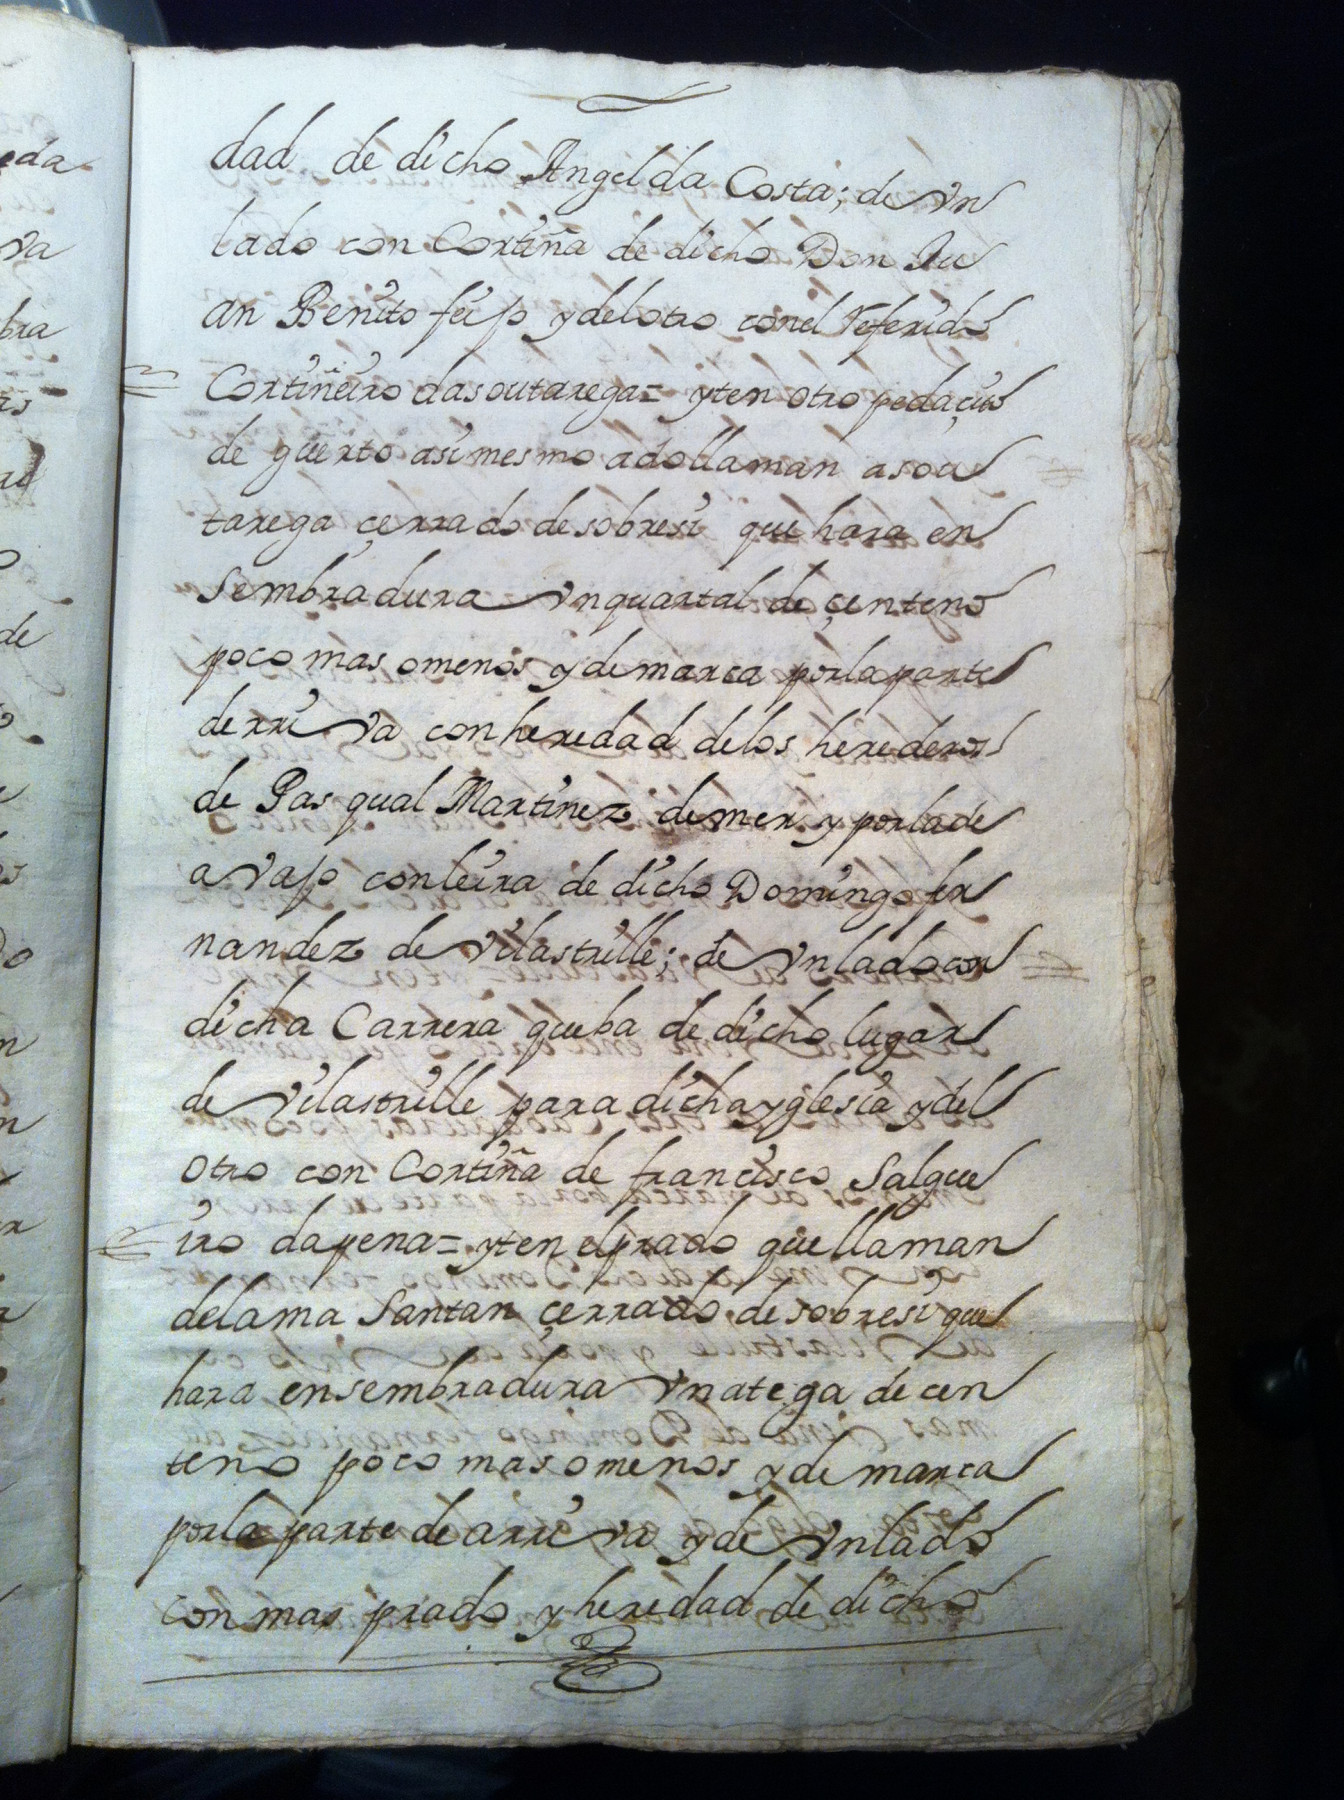 dad de dicho Angel da Costa; de vn
lado con Cortiña de dicho Don Ju
an Benito feijo y delotro conel referido
Cortiñeiro dasoutarega= yten otro pedaçiño
de guerto asimesmo adollaman asou
tarega çerrado desobresi que hara en
Sembradura vnquartal de çenteno
poco mas omenos y demarca porlaparte
derriva conheredad delos herederos
de Pasqual Martinez demer y porlade
avajo conleira de dicho Domingo fer
nandez de vilastrille; de vnladocon
dicha Carrera queba de dicho lugar
de vilastrille para dichayglesia ydel
otro con Cortiña de francisco Salgue
iro dapena= yten elprado quellaman
delama Santan çerrado desobresi que
hara ensembradura vnatega de cen
teno poco mas omenos y demarca
porla parte de arriva y de vnlado
con mas prado y heredad de dicho